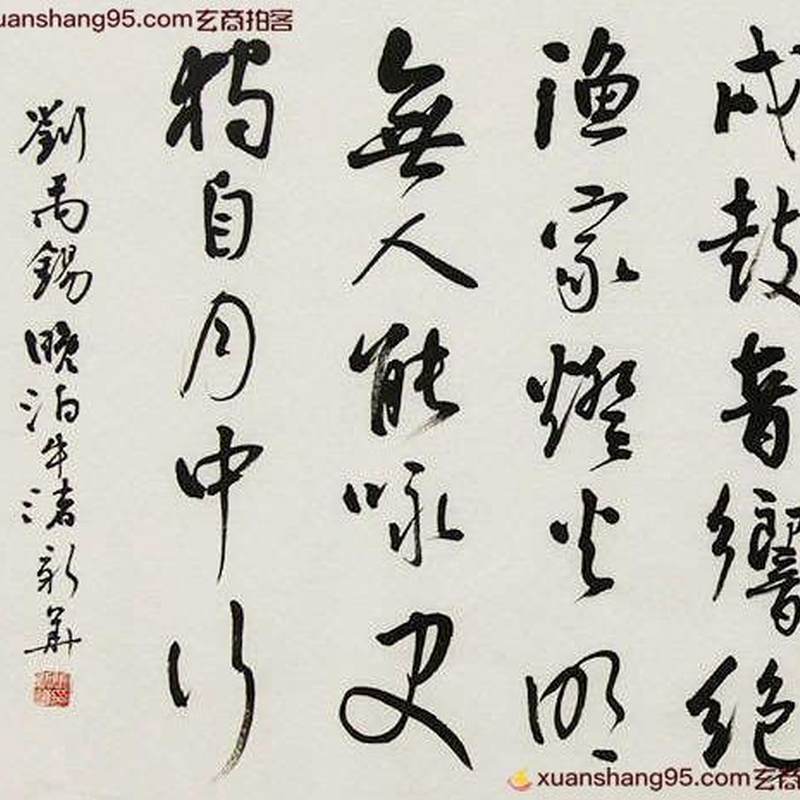 uanshang95.com玄商拍客
戍鼓音響絶
渔家燈火明
無人能咏史
獨自月中行
劉禹錫晚泊牛渚新華
xuanshang95.com玄商